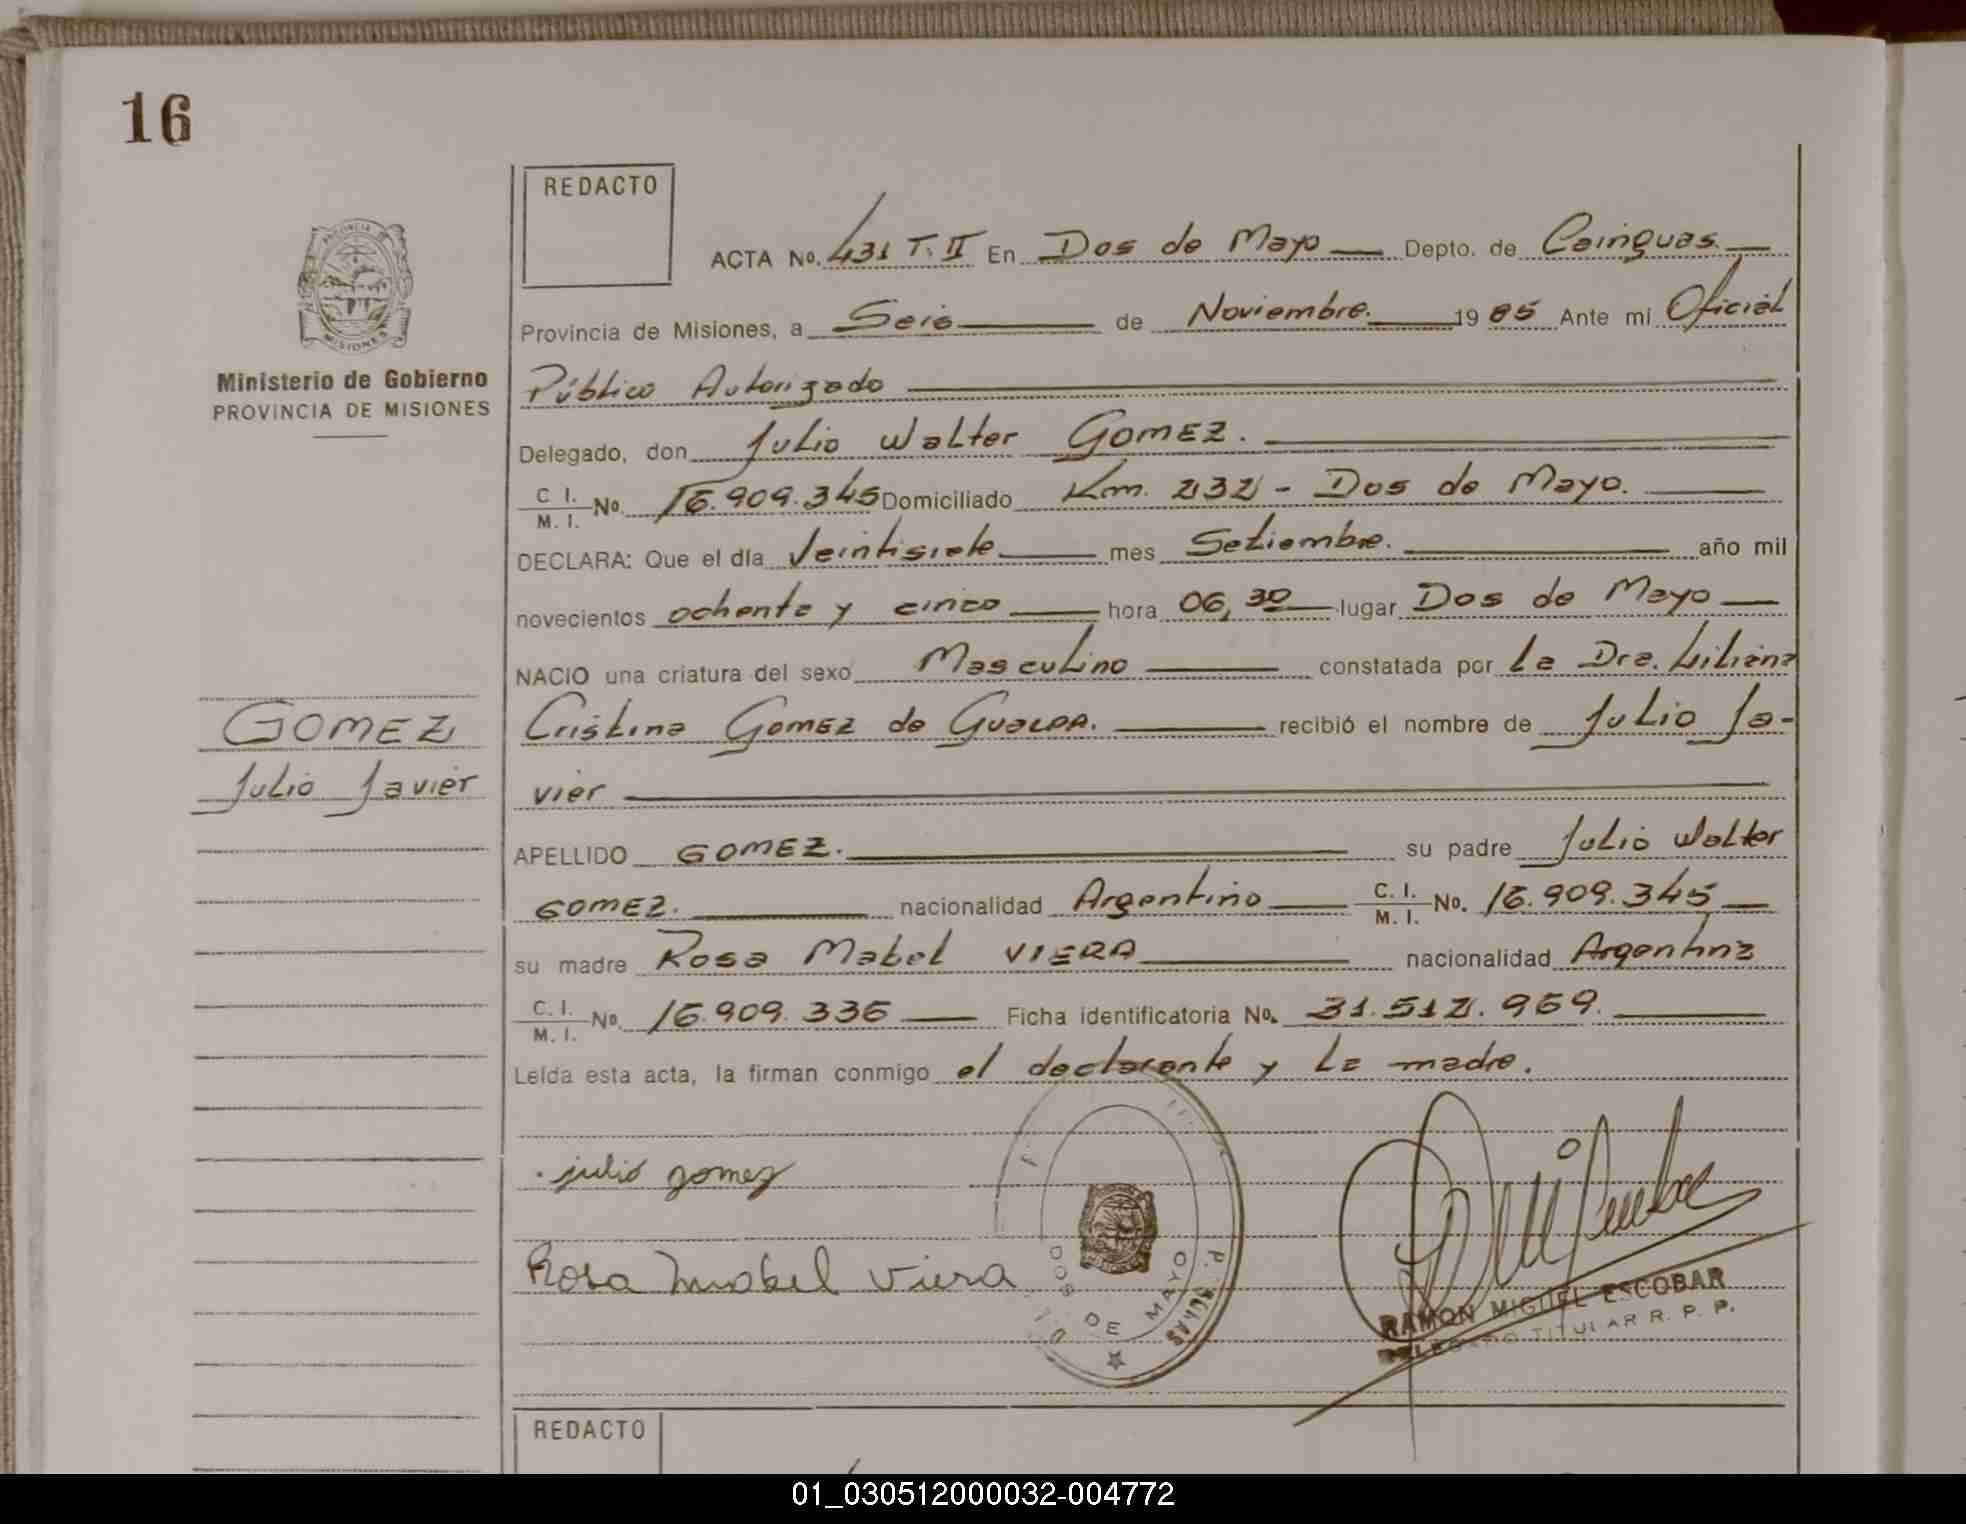 16
REDACTO
ACTA No. 431 T. II En Dos de Mayo Depto. de Cainguas.
Provincia de Misiones, a Seis de Noviembre. 19 85 Ante mi Oficial
Público Autorizado
Delegado, don Julio Walter GOMEZ.
C. I. / M. I. No. 16.909.345 Domiciliado Km. 232 - Dos de Mayo.
DECLARA: Que el día Veintisiete mes Setiembre. año mil
novecientos ochenta y cinco hora 06,30 lugar Dos de Mayo
NACIO una criatura del sexo Masculino constatada por la Dra. Liliana
Cristina Gomez de recibió el nombre de Julio Ja-
vier
APELLIDO GOMEZ. su padre Julio Walter
GOMEZ. nacionalidad Argentino C. I. / M. I. No. 16.909.345
su madre Rosa Mabel VIERA nacionalidad Argentina
C. I. / M. I. No. 16.909.336 Ficha identificatoria No. 31.512.969.
Leída esta acta, la firman conmigo el declarante y la madre.
julio gomez
Rosa Mabel Viera
DOS DE MAYO
RAMON MIGUEL ESCOBAR
DELEGADO TITULAR R. P. P.
PROVINCIA DE
MISIONES
Ministerio de Gobierno
PROVINCIA DE MISIONES
GOMEZ
Julio Javier
REDACTO
01_030512000032-004772